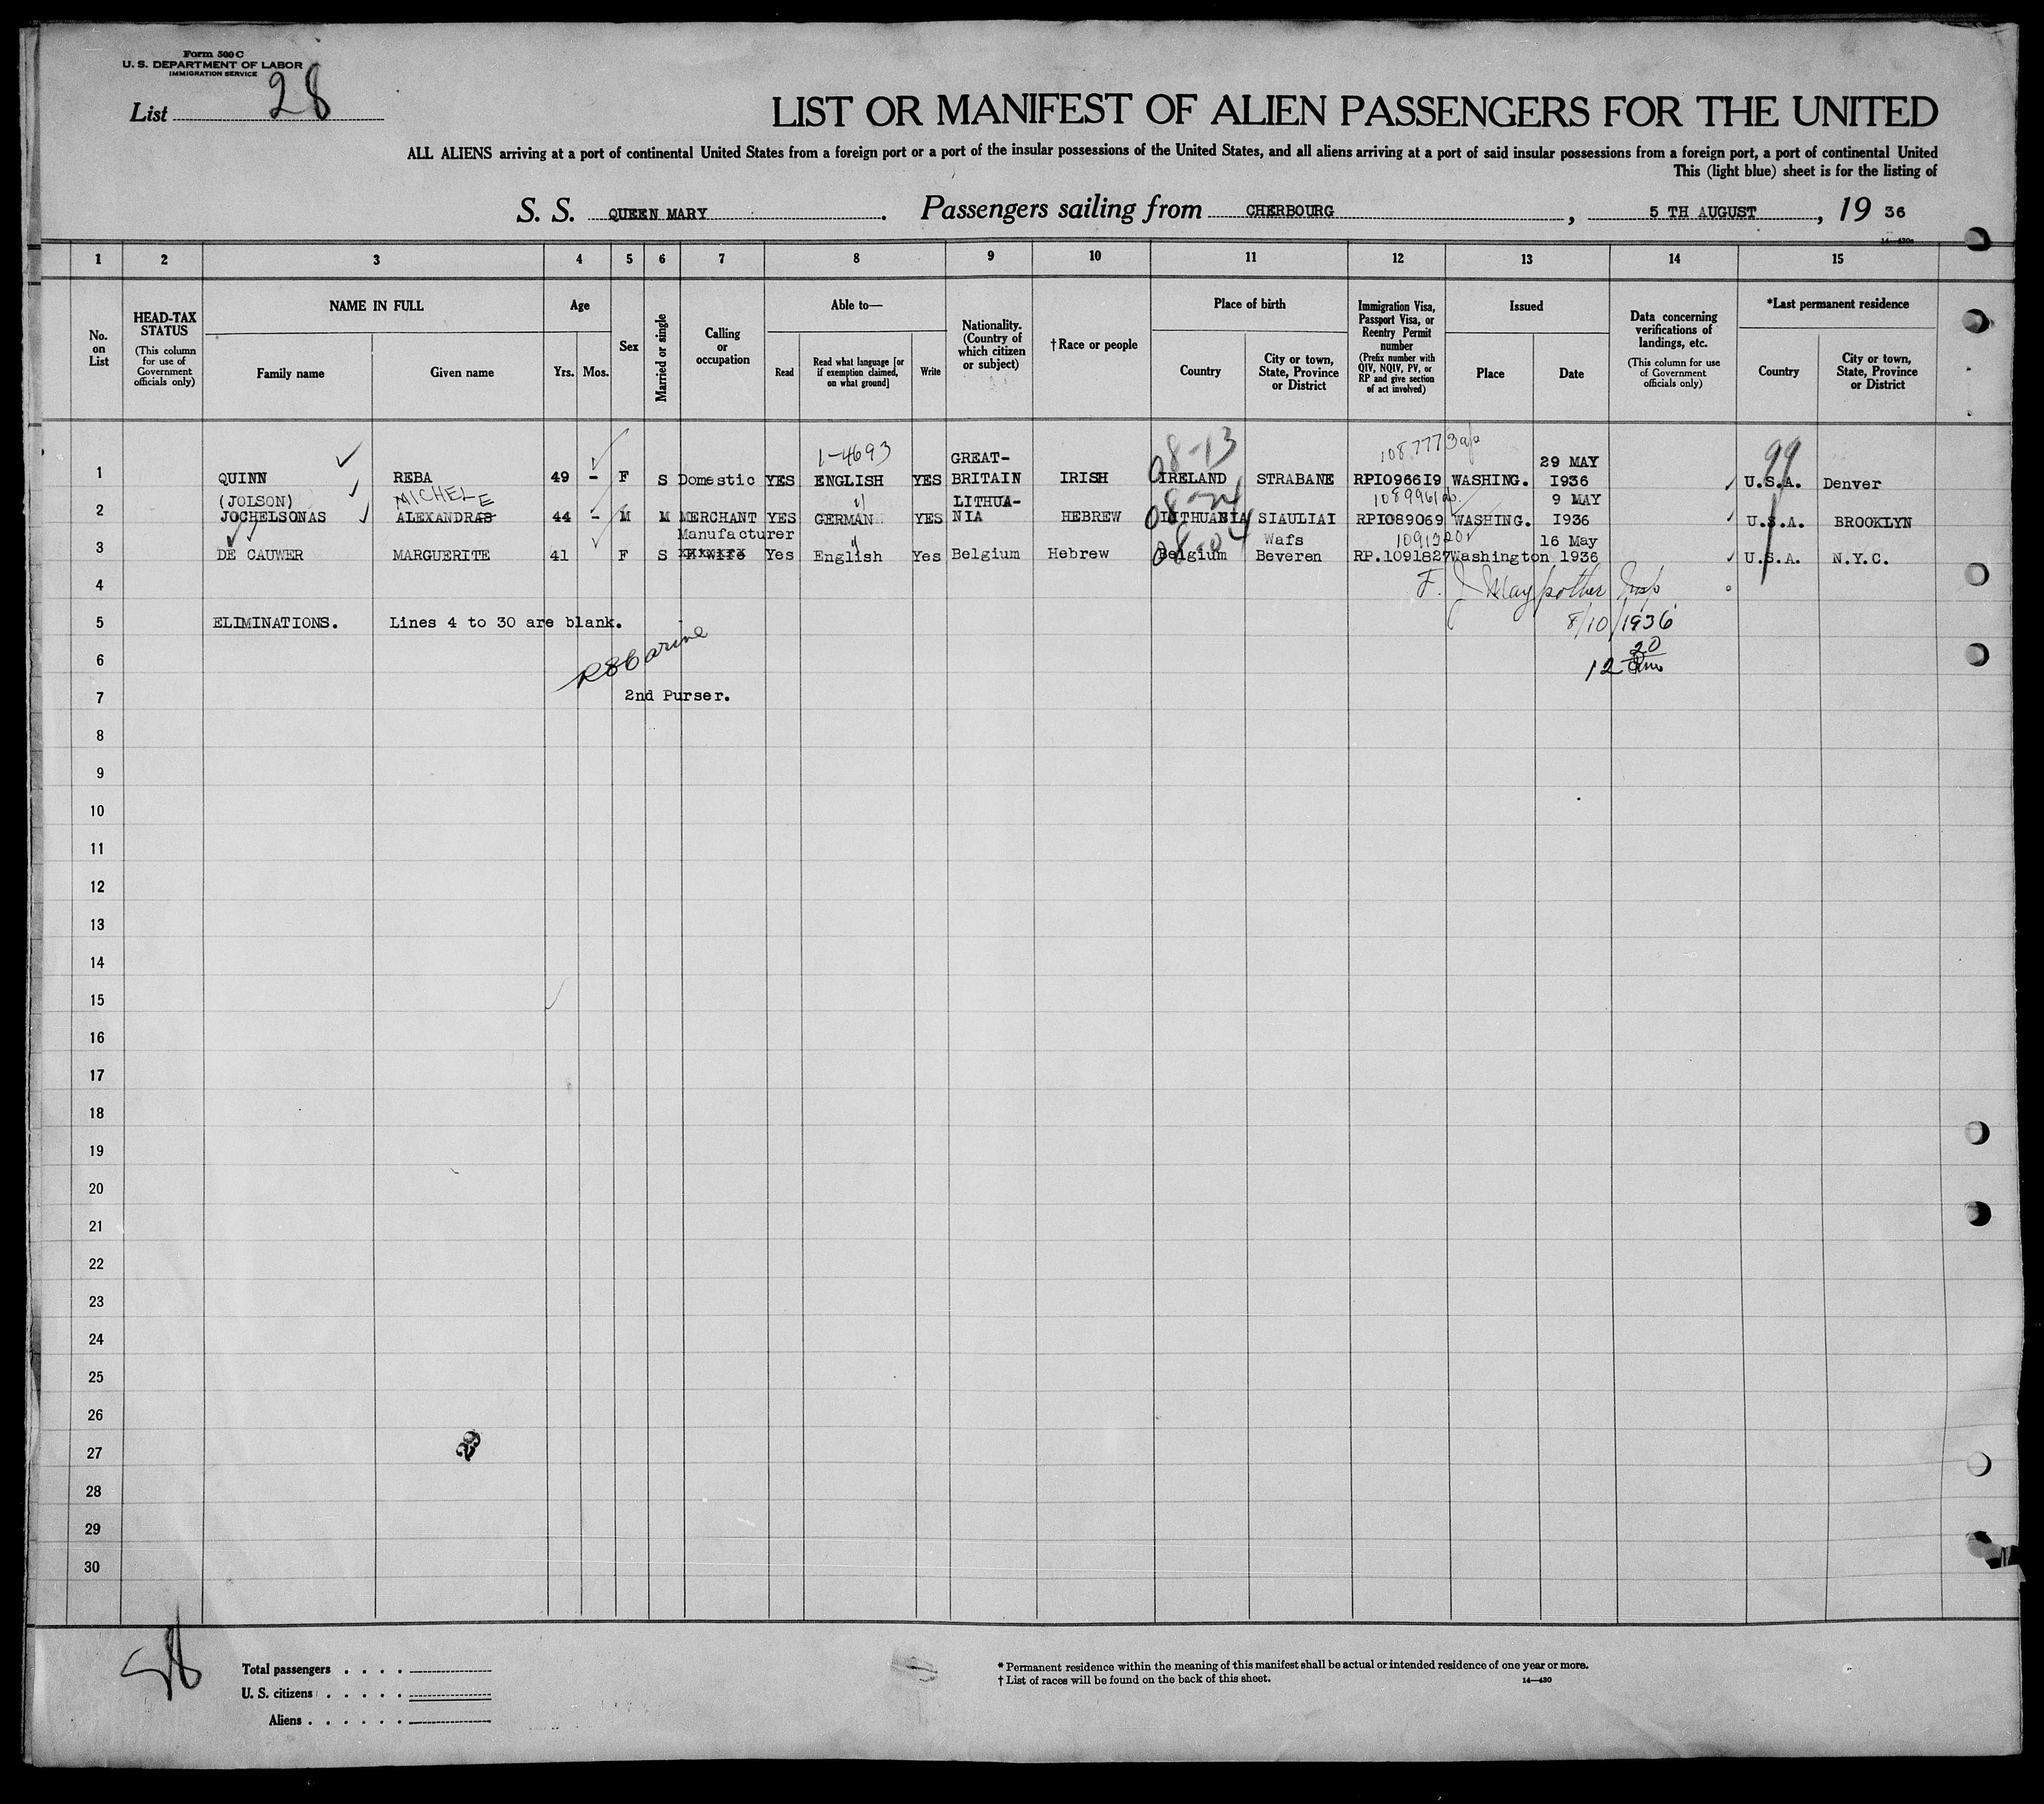 Form 500 C
U. S. DEPARTMENT OF LABOR
IMMIGRATION SERVICE
List 28
LIST OR MANIFEST OF ALIEN PASSENGERS FOR THE UNITED
ALL ALIENS arriving at a port of continental United States from a foreign port or a port of the insular possessions of the United States, and all aliens arriving at a port of said insular possessions from a foreign port, a port of continental United
This (light blue) sheet is for the listing of
S. S. QUEEN MARY. Passengers sailing from CHERBOURG, 5 TH AUGUST, 19 36
1 2 3 4 5 6 7 8 9 10 11 12 13 14 15
No. on List
HEAD-TAX STATUS
(This column for use of Government officials only)
NAME IN FULL
Family name Given name
Age
Yrs. Mos.
Sex
Married or single
Calling or occupation
Able to—
Read
Read what language [or if exemption claimed, on what ground]
Write
Nationality. (Country of which citizen or subject)
† Race or people
Place of birth
Country
City or town, State, Province or District
Immigration Visa, Passport Visa, or Reentry Permit number
(Prefix number with QIV, NQIV, PV, or RP and give section of act involved)
Issued
Place Date
Data concerning verifications of landings, etc.
(This column for use of Government officials only)
*Last permanent residence
Country
City or town, State, Province or District
1-4693 GREAT- 08-13 29 MAY 99
1 QUINN REBA 49 - F S Domestic YES ENGLISH YES BRITAIN IRISH IRELAND STRABANE RPI0966I9 WASHING. I936 U.S.A. Denver
(JOLSON) MICHELE LITHUA- 9 MAY
2 JOCHELSONAS ALEXANDRAS 44 - M M MERCHANT YES GERMAN YES NIA HEBREW LITHUANIA SIAULIAI RPI089069 WASHING. I936 U.S.A. BROOKLYN
Manufacturer Wafs 16 May
3 DE CAUWER MARGUERITE 41 F S Yes English Yes Belgium Hebrew Belgium Beveren RP.1091827 Washington 1936 U.S.A. N.Y.C.
4
5 ELIMINATIONS. Lines 4 to 30 are blank. 8/10/1936
6
7 2nd Purser.
8
9
10
11
12
13
14
15
16
17
18
19
20
21
22
23
24
25
26
27
28
29
30
29
28
Total passengers
U. S. citizens
Aliens
* Permanent residence within the meaning of this manifest shall be actual or intended residence of one year or more.
† List of races will be found on the back of this sheet.
14—430